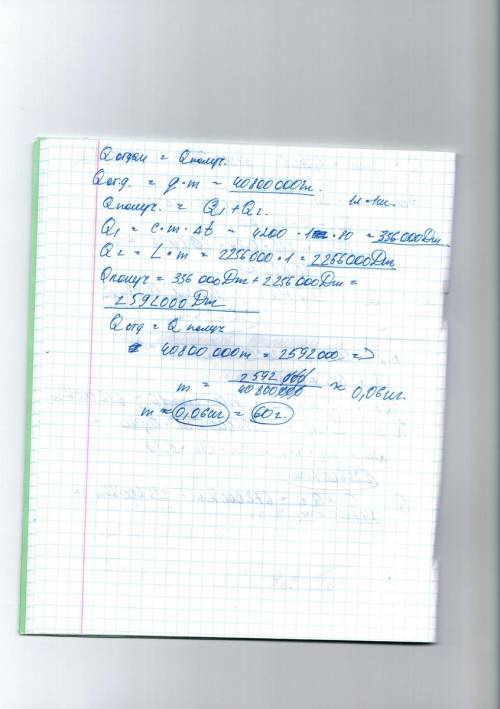 Qотдан = Qполуч.
Qотд. = q·m = 40800000m.
Qполуч. = Q₁ + Q₂. 1л = 1кг.
Q₁ = c·m·Δt = 4200 · 1 · 80 = 336 000Дж
Q₂ = L·m = 2256000·1 = 2256000Дж
Qполуч = 336 000Дж + 2256000Дж =
2592000Дж
Qотд = Qполуч
40800 000m = 2592000 =>
m = 2592 000 / 40800000 ≈ 0,06кг.
m ≈ 0,06кг = 60г.